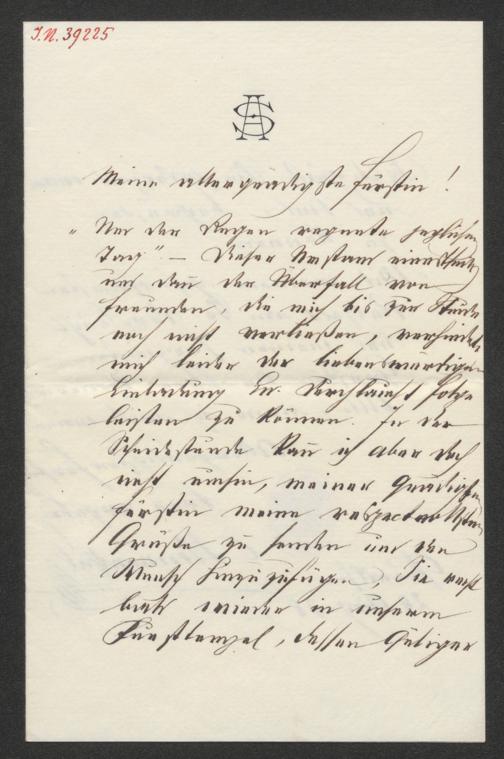 I.N. 39225
AS
Meine allergnädigste Fürstin!
„Und der Regen regnete jeglichen
Tag“. — Dieser Umstand einestheils
und dann der Überfall von
Freunden, die mich bis zur Stunde
noch nicht verließen, verhinderte
mich leider der liebenswürdigen
Einladung Ew. Durchlaucht Folge
leisten zu können. In der
Scheidestunde kann ich aber doch
nicht umhin, meiner gnädigsten
Fürstin meine respectvollsten
Grüße zu senden und den
Wunsch hinzuzufügen, Sie recht
bald wieder in unserem
Kunsttempel, dessen Gütiger